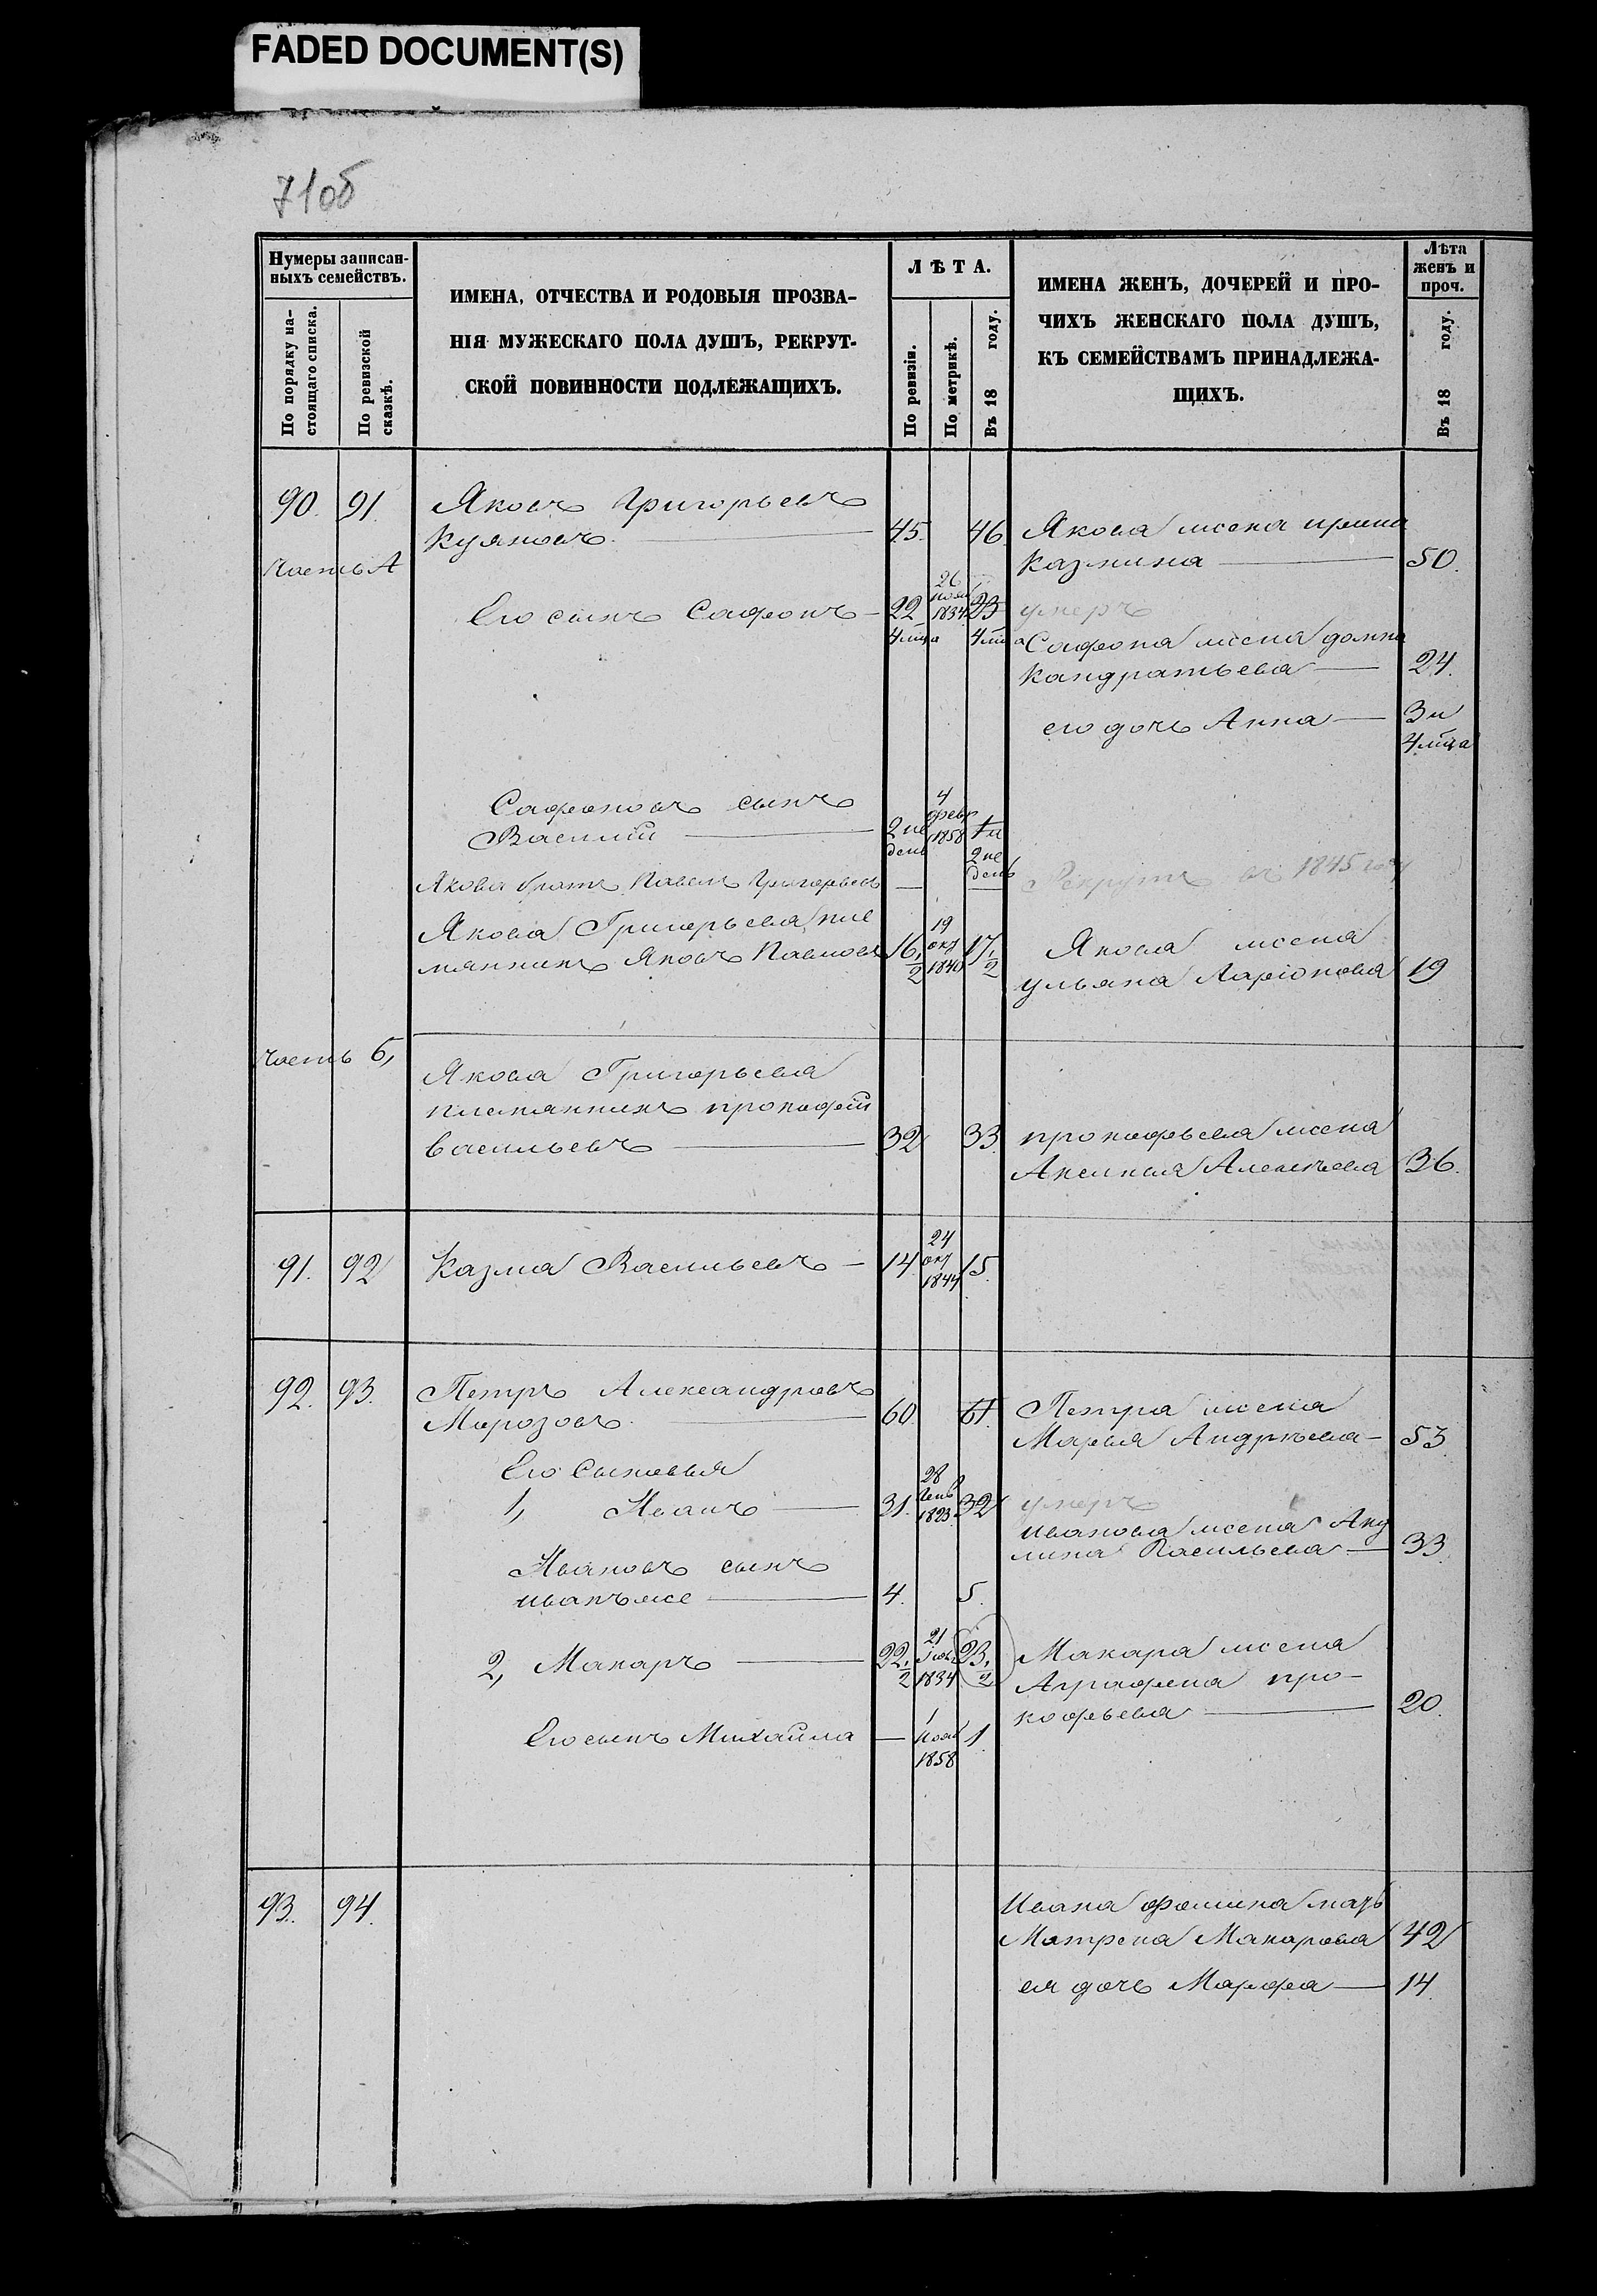 FADED DOCUMENT(S)
71об
Нумеры записан-
ныхъ семействъ.
По порядку на-
стоящаго списка.
По ревизской
сказкѣ.
ИМЕНА, ОТЧЕСТВА И РОДОВЫЯ ПРОЗВА-
НІЯ МУЖЕСКАГО ПОЛА ДУШЪ, РЕКРУТ-
СКОЙ ПОВИННОСТИ ПОДЛЕЖАЩИХЪ.
ЛѢТА.
По ревизіи.
По метрикѣ.
Въ 18 году.
ИМЕНА ЖЕНЪ, ДОЧЕРЕЙ И ПРО-
ЧИХЪ ЖЕНСКАГО ПОЛА ДУШЪ,
КЪ СЕМЕЙСТВАМЪ ПРИНАДЛЕЖА-
ЩИХЪ.
Лѣта
женъ и
проч.
Въ 18 году.
90. 91. Яковъ Григорьевъ
Куяновъ 45. 46. Якова жена ирина
Казмина 50.
Часть А
Его сынъ Сафонъ 22 4 мца 26 нояб 1834 23 4 мца умеръ
Сафона жена домна
Кандратьева 24.
его дочь Анна 3 и
4 мца
Сафоновъ сынъ
Василий 2 не дель 4 февр 1858 1 и 2 не дель
Якова братъ Павелъ Григорьевъ — — Рекрутъ въ 1845 году
Якова Григорьева пле
мянникъ Яковъ Павловъ 16 1/2 19 окт 1840 17 1/2 Якова жена
ульяна Ларіонова 19
часть б,
Якова Григорьева
племянникъ прокофій
васильевъ 32 33. прокофьева жена
Аксинья Алексѣева 36.
91. 92 Казма Васильевъ 14. 24 окт 1844 15.
92. 93. Петръ Александровъ
Марозовъ 60. 61. Петра жена
Марья Андрѣева 53
Его Сыновья
1, Иванъ 31. 28 Генв 1823 32 умеръ
иванова жена Аку
лина Васильева 33.
Ивановъ сынъ
иванъ же 4. 5.
2, Макаръ 22 1/2 21 1834 23 1/2 Макара жена
Аграфена про-
кофьева 20.
Его сынъ Михайла — 1 нояб 1858 1.
93. 94. Ивана фомина мать
Матрена Макарова 42
ея дочь Марфа 14.